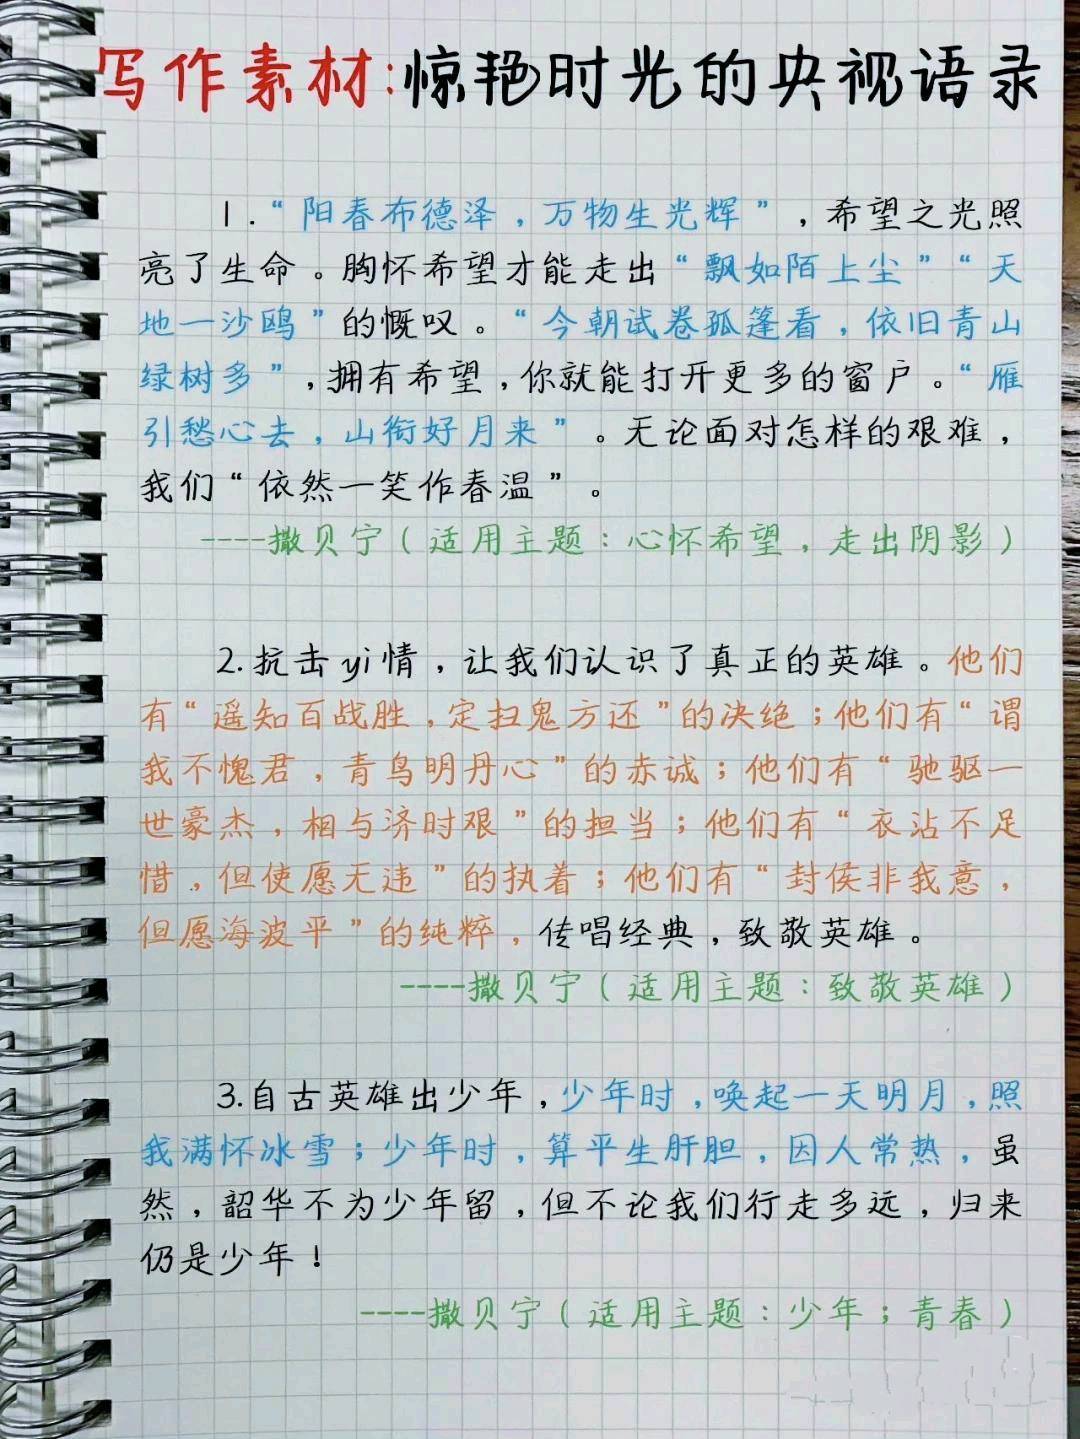 写作素材:惊艳时光的央视语录
1.“阳春布德泽，万物生光辉”，希望之光照
亮了生命。胸怀希望才能走出“飘如陌上尘”“天
地一沙鸥”的慨叹。“今朝试卷孤篷看，依旧青山
绿树多”，拥有希望，你就能打开更多的窗户。“雁
引愁心去，山衔好月来”。无论面对怎样的艰难，
我们“依然一笑作春温”。
----撒贝宁（适用主题：心怀希望，走出阴影）
2.抗击yi情，让我们认识了真正的英雄。他们
有“遥知百战胜，定扫鬼方还”的决绝；他们有“谓
我不愧君，青鸟明丹心”的赤诚；他们有“驰驱一
世豪杰，相与济时艰”的担当；他们有“衣沾不足
惜，但使愿无违”的执着；他们有“封侯非我意，
但愿海波平”的纯粹，传唱经典，致敬英雄。
----撒贝宁（适用主题：致敬英雄）
3.自古英雄出少年，少年时，唤起一天明月，照
我满怀冰雪；少年时，算平生肝胆，因人常热，虽
然，韶华不为少年留，但不论我们行走多远，归来
仍是少年！
----撒贝宁（适用主题：少年；青春）